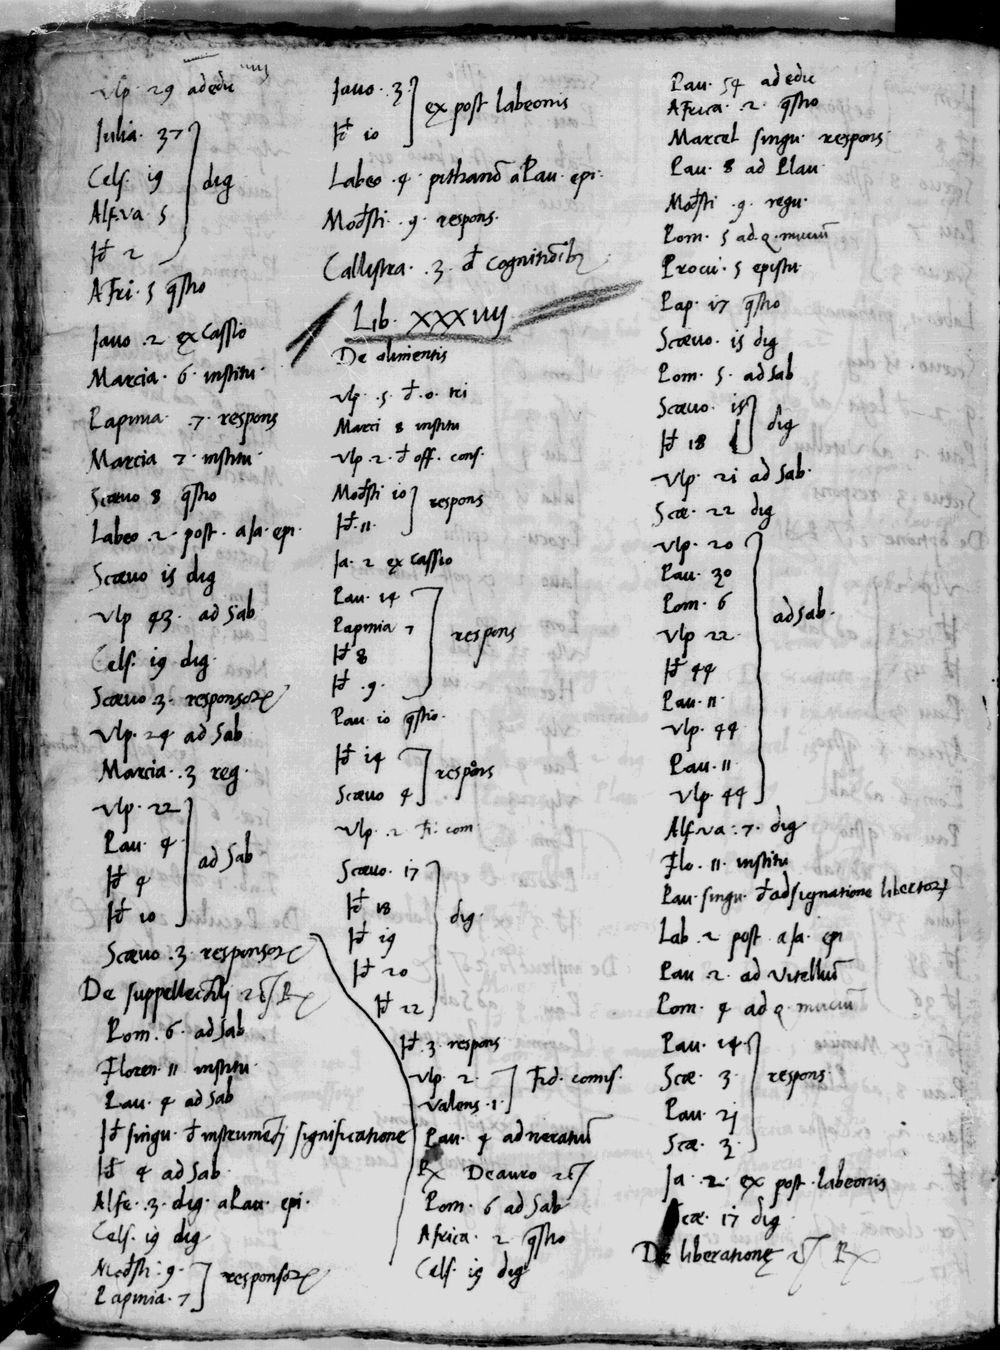 Vlp. 29 ad edic
Iulia. 37
Cels. 19
Alf. va 5
Id 2
dig
Afri. 5 qstio
Iauo. 2 ex Cassio
Marcia. 6. institu.
Papinia. 7. respons
Marcia 7. institu
Scæuo 8 qstio
Labeo. 2. post. a Ia. epi.
Scæuo 15 dig
Vlp 43. ad Sab
Cels. 19 dig.
Scæuo 3. responsoꝝ
Vlp. 24 ad Sab
Marcia. 3 reg.
Vlp. 22
Pau. 4.
Id 4
Id 10
ad Sab
Scæuo. 3. responsoꝝ
De suppellectili
Pom. 6. ad Sab
Floren. 11 institu.
Pau. 4 ad Sab
Id singu. d instrumeti significatione
Id 4 ad Sab.
Alfe. 3. dig. a Pau. epi.
Cels. 19 dig
Modsti. 9.
Papinia. 7
responsoꝝ
Iauo. 3.
Id 10
ex post labeonis
Labeo. 4. pithanō a Pau. epi.
Modsti. 9. respons.
Callistra. 3. d cognitiōibꝫ
Lib. XXXIIIJ
De alimentis
Vlp. 5. d. o. tri
Marci 8 institu
Vlp. 2. d off. cons.
Modsti 10
Id. 11.
respons
Ia. 2 ex Cassio
Pau. 14
Papinia 7
Id 8
Id. 9.
respons
Pau. 10 qstio.
Id 14
Scæuo 4
respons
Vlp. 2 fi. com
Scæuo. 17
Id 18
Id 19
Id 20
Id 22
dig.
Id. 3. respons
Vlp. 2.
Valens. 1.
Fid. comis.
Pau. 4 ad neratiū
De auro
Pom. 6 ad Sab
Africa. 2 qstio
Cels. 19 dig
Pau. 54 ad edic
Africa. 2. qstio
Marcel singu. respons.
Pau. 8 ad Plau.
Modsti. 9. regu.
Pom. 5 ad. Q. muciū
Procu. 5 epistu.
Pap. 17 qstio.
Scæuo. 15 dig
Pom. 5. ad Sab
Scæuo. 15
Id 18
dig
Vlp. 21 ad Sab.
Scæ. 22 dig
Vlp. 20
Pau. 30
Pom. 6
Vlp 22
Id 44
Pau. 11
Vlp. 44
Pau. 11
Vlp. 44
ad Sab.
Alf. va. 7. dig
Flo. 11. institu
Pau. singu. d adsignatione libertoꝝ
Lab. 2 post. a Ia. epi
Pau 2. ad vitelliū
Pom. 4 ad Q. muciū
Pau. 14
Scæ. 3
Pau. 21
Scæ. 3.
respons.
Ia. 2. ex post labeonis
Scæ. 17 dig.
De liberatione